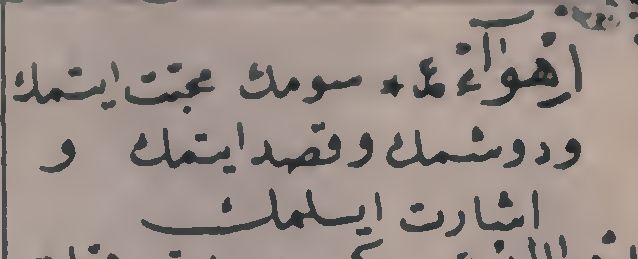 اهواء ع٭ سومك محبّت ايتمك
ودوشمك وقصد ايتمك و
اشارت ايلمك